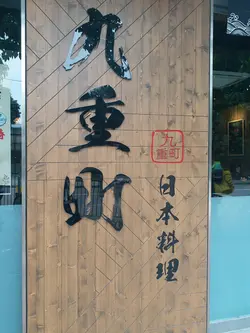 九重町
九重町
日本料理